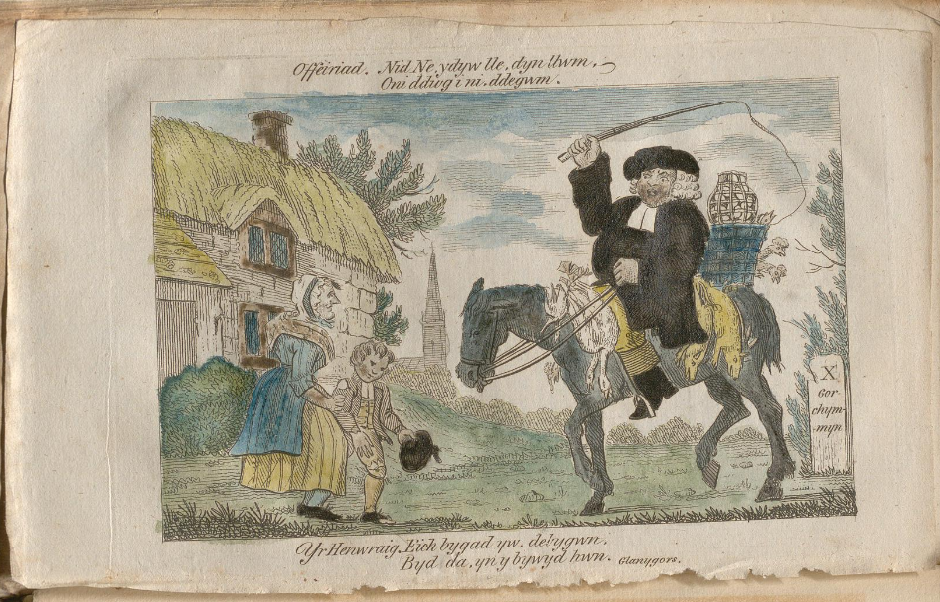 Offeiriad. Nid Ne, ydyw lle, dyn llwm,
Oni ddwg i ni, ddegwm.
X
Gor
chym-
myn
Yr Henwraig. Eich bygad yw. degygwn,
Byd da, yn y bywyd hwn. Glanygors.